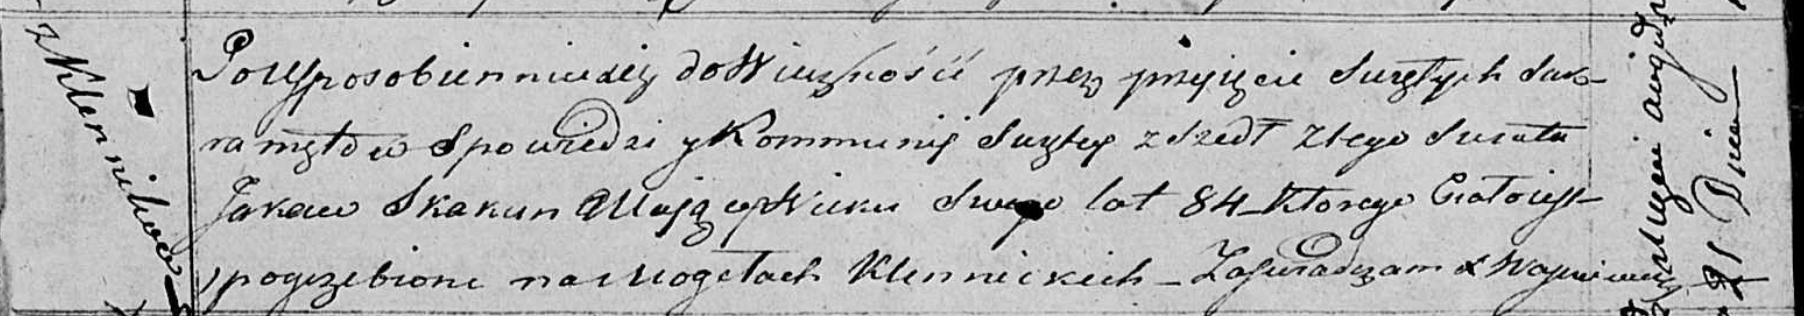 z Klennikow
Po Usposobienniu dey do Wiecznośći przez przyięcie Swiętych Sak-
ramętow Spowiedzi y Kommunij Swiętey zszedł z tego Swiata
Jakow Skakun Maiący Wieku Swego lat 84 Ktorego Ciało iest
pogrzebione na Mogełach Klennickich - Zaswiadczam X
Dnia
21